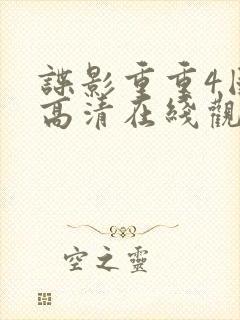 諜影重重4国
高清在綫觀
空之靈